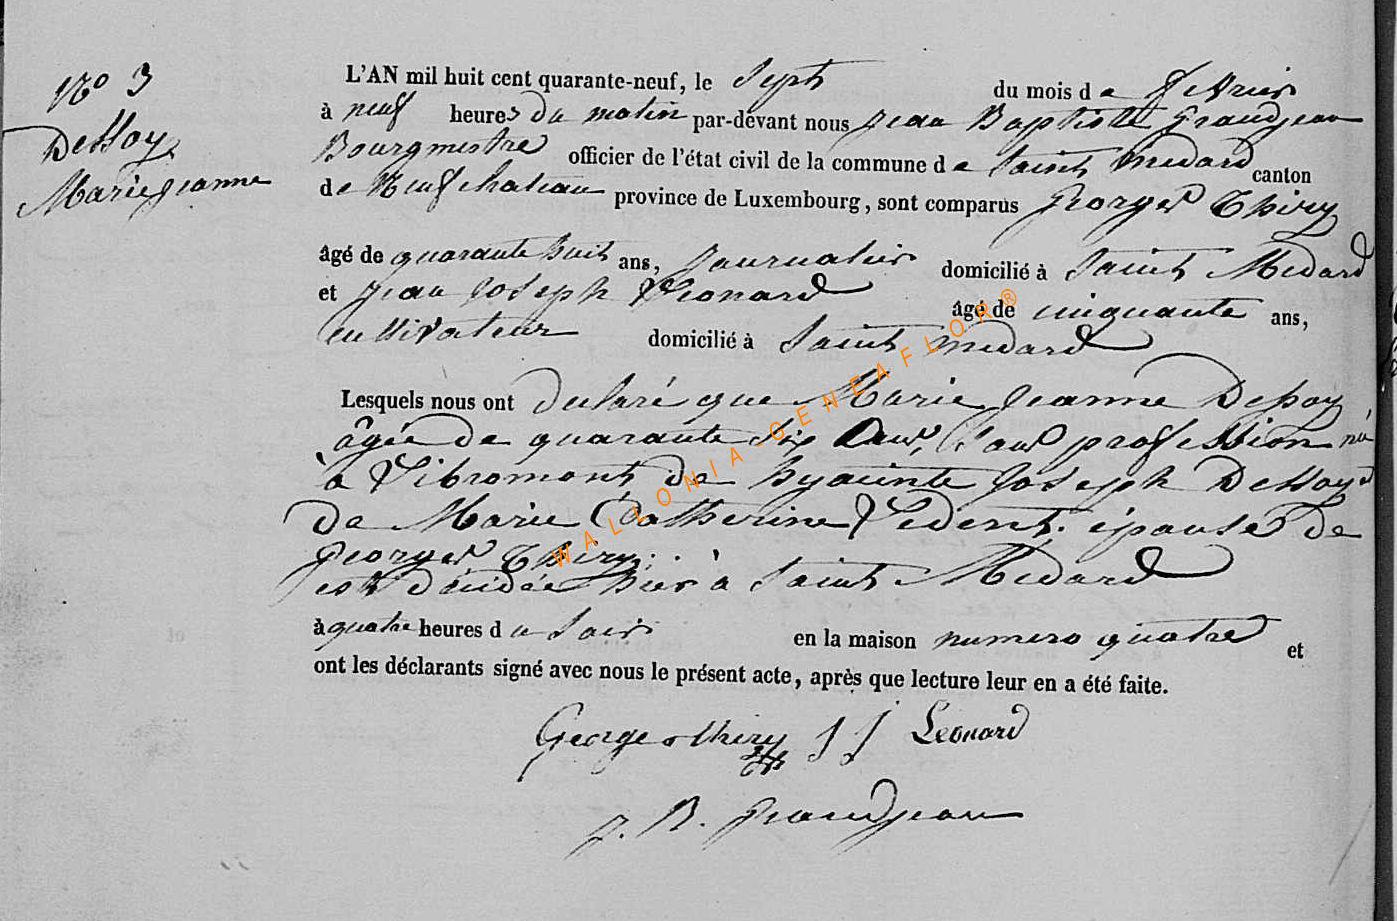 N° 3
Dessoy
Marie jeanne
L'AN mil huit cent quarante-neuf, le Sept du mois de fevrier
à neuf heures du matin par-dévant nous jean Baptiste Grandjean
Bourgmestre officier de l'état civil de la commune de Saint medard canton
de Neufchateau province de Luxembourg, sont comparus Georges Thiry
âgé de quarante huit ans, journalier domicilié à Saint Medard
et jean joseph Léonard âgé de cinquante ans,
cultivateur domicilié à Saint medard
Lesquels nous ont declaré que Marie jeanne Dessoy
âgée de quarante six ans, sans profession née
à Vibromont de hyacinte joseph Dessoy et
de Marie Catherine Ledent, épouse de
georges Thiry;
est décédée hier à Saint Medard
à quatre heures du soir en la maison numero quatre et
ont les déclarants signé avec nous le présent acte, après que lecture leur en a été faite.
George thiry J J Léonard
J. B. Grandjean
WALLONIA-GENEAFLOR®